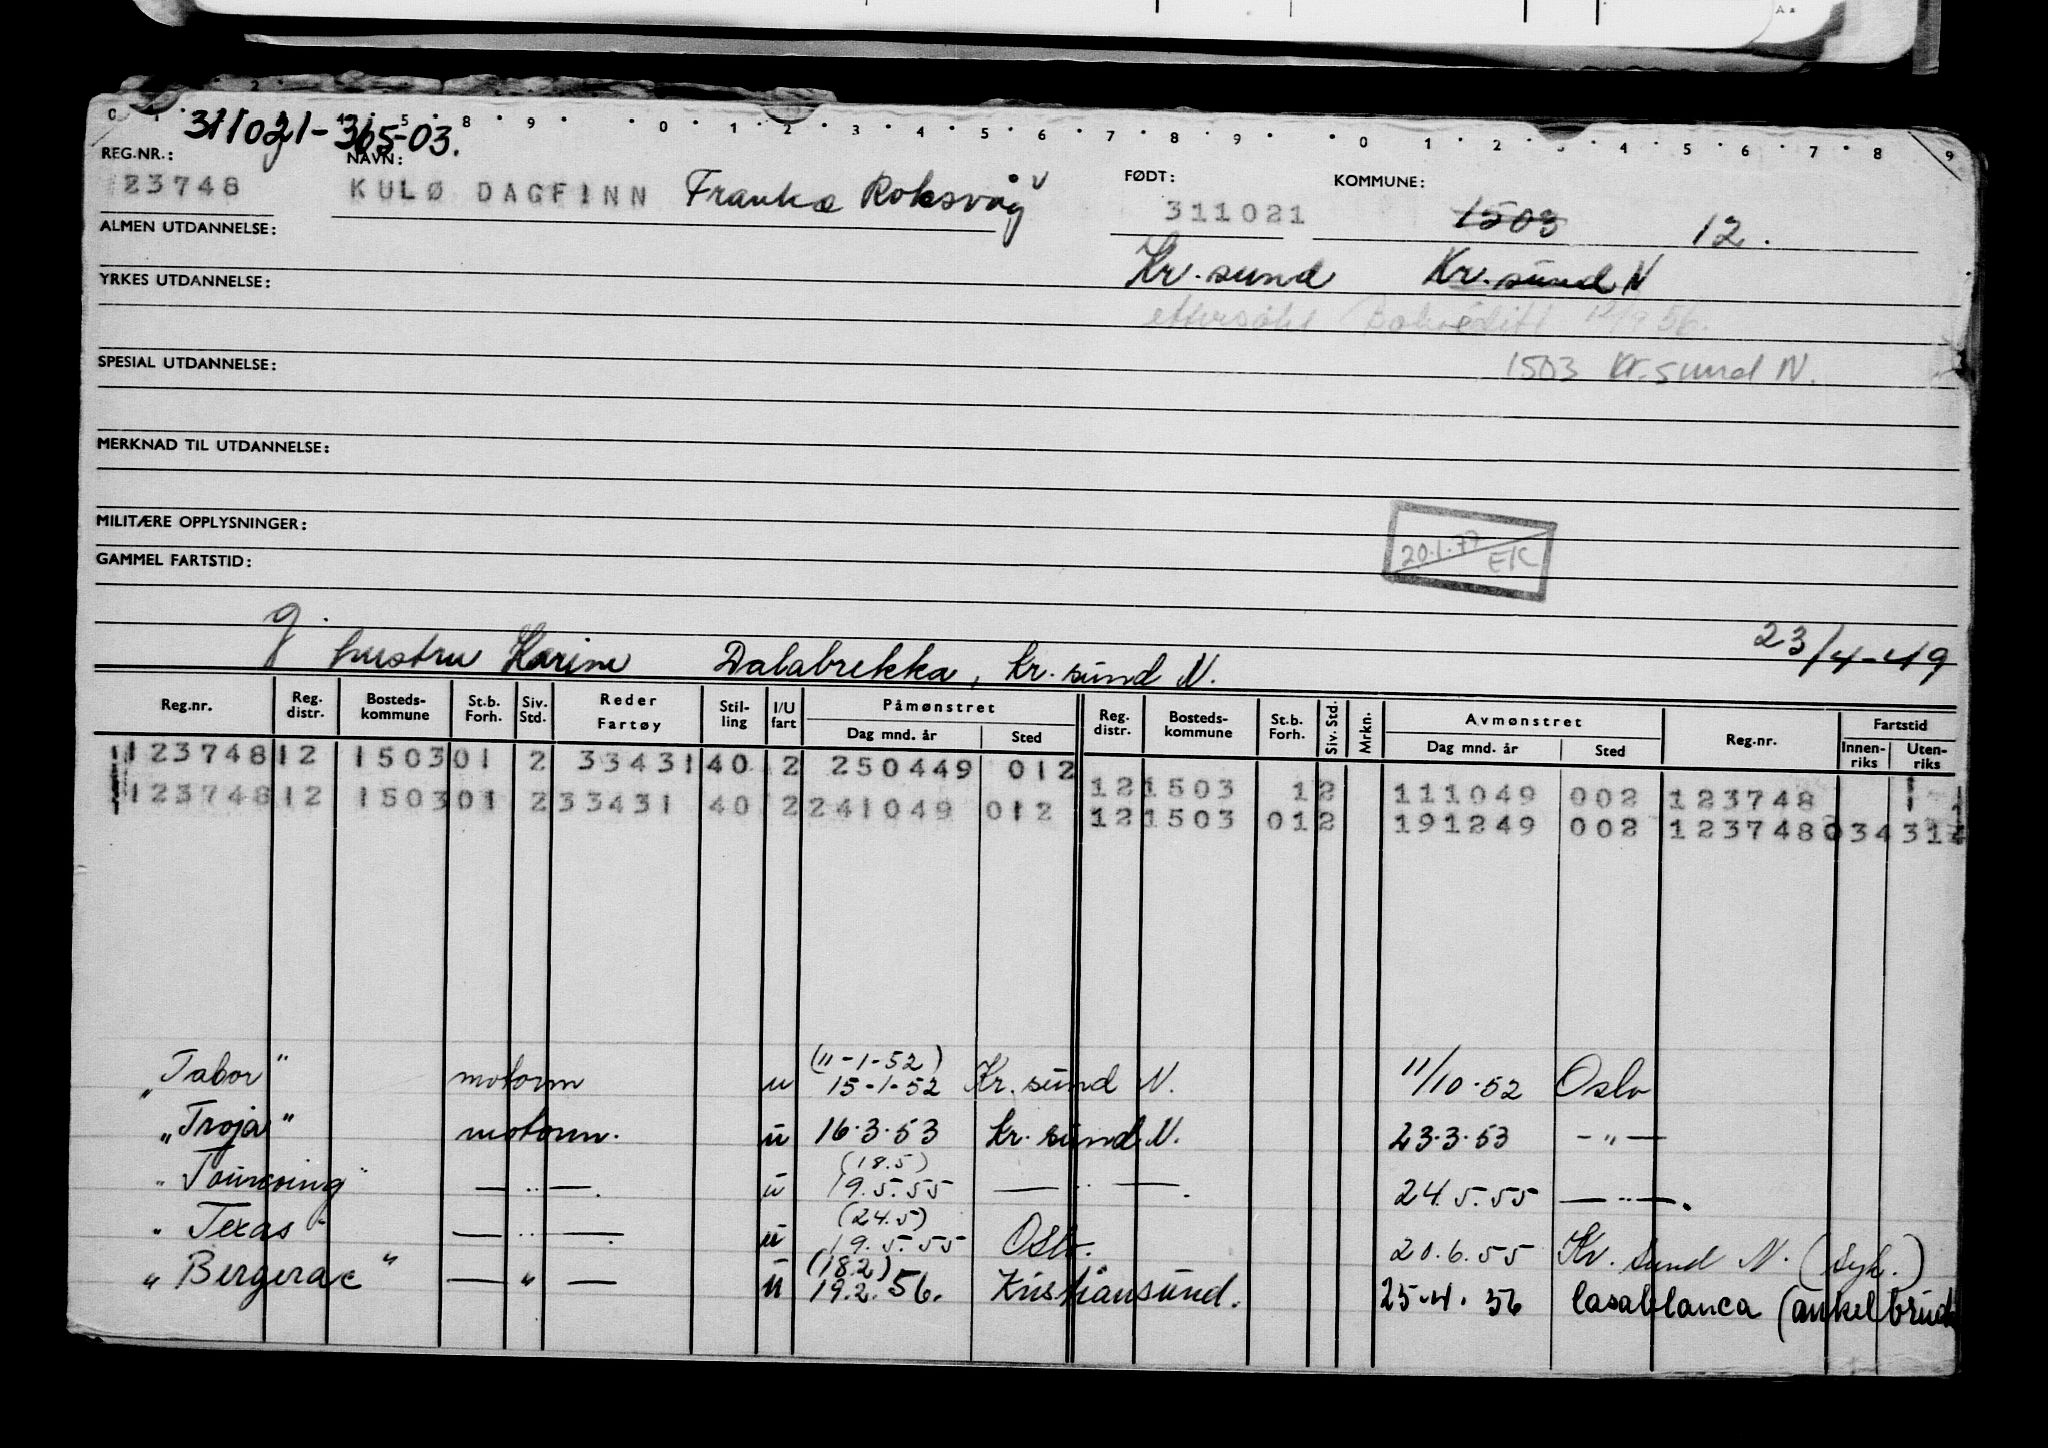 311021-365-03.
REG.NR.: NAVN: FØDT: KOMMUNE:
23748 KULØ DAGFINN Frantz Roksvåg 311021 1503 12.
ALMEN UTDANNELSE:
Kr. sund Kr. sund N
YRKES UTDANNELSE:
ettersøkt 12/9 56.
SPESIAL UTDANNELSE: 1503 Kr. sund N.
MERKNAD TIL UTDANNELSE:
MILITÆRE OPPLYSNINGER:
20.1.77 EK
GAMMEL FARTSTID:
g. hustru Karine Dalabrekka, Kr. sund N. 23/4-49
Reg.nr. Reg. distr. Bosteds-kommune St.b. Forh. Siv. Std. Reder Fartøy Stil-ling I/U fart Påmønstret Dag mnd. år Sted Reg. distr. Bosteds-kommune St.b. Forh. Siv. Std. Mrkn. Avmønstret Dag mnd. år Sted Reg.nr. Fartstid Innen-riks Uten-riks
123748 12 1503 01 2 33431 40 2 250449 012 12 1503 1 2 111049 002 123748
123748 12 1503 01 2 33431 40 2 241049 012 12 1503 01 2 191249 002 123748 034 314
"Tabor" motorm u (11-1-52) 15-1-52 Kr. sund N. 11/10-52 Oslo
"Troja" motorm. u 16.3.53 Kr. sund N. 23.3.53 -"-
— " —. u (18.5) 19.5.55 — " —. 24.5.55 — " —.
"Texas" — " —. u (24.5) 19.5.55 Oslo. 20.6.55 Kr. sund N. (syk.)
"Bergerac" — " — u (18.2) 19.2.56. Kristiansund. 25.4.56 Casablanca (ankelbrudd